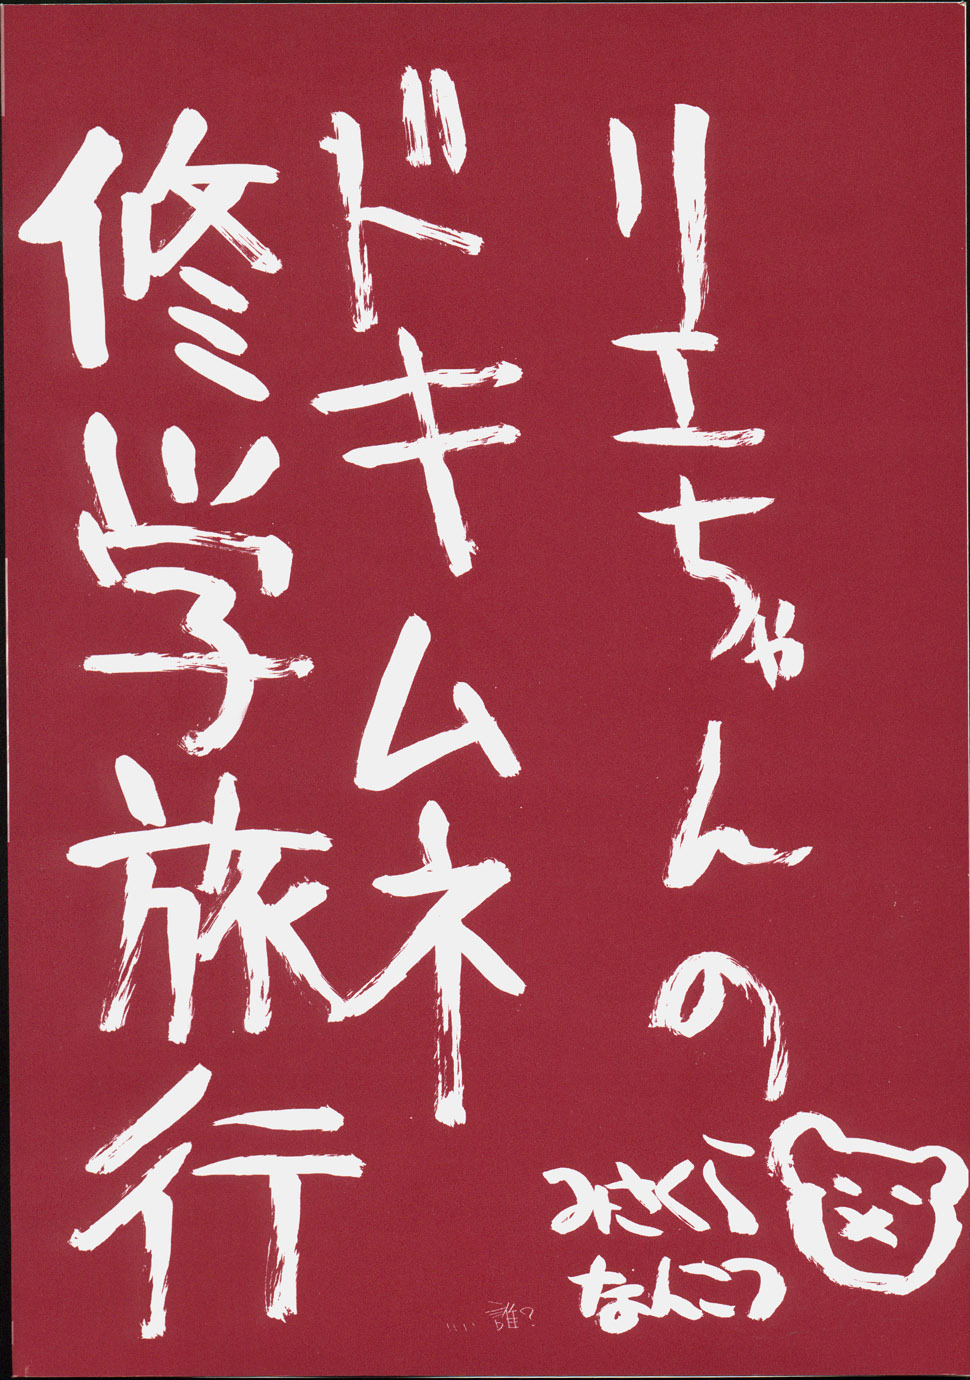 リエちゃんの
ドキムネ
修学旅行
みさくら
なんこつ
…誰?